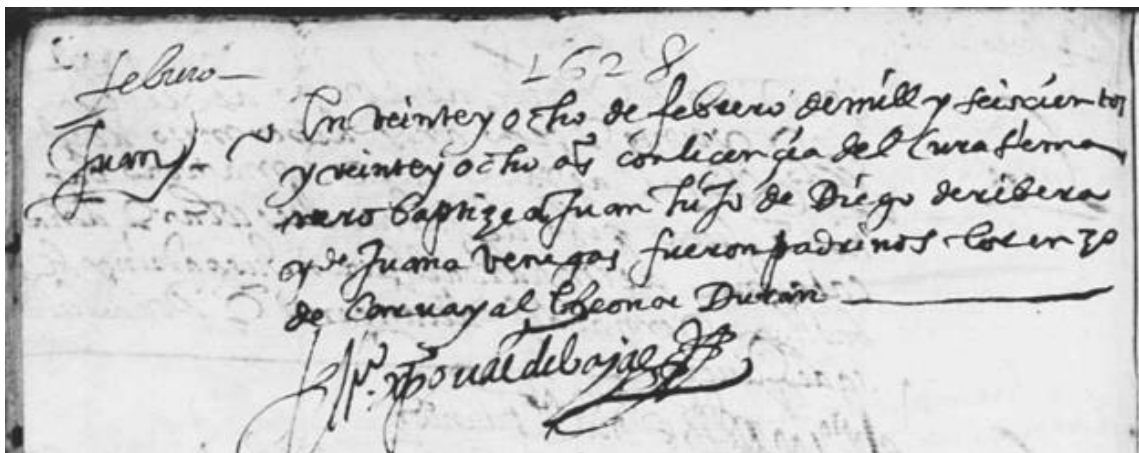 febrero
1628
Juan
En veinte y ocho de febrero de mill y seiscientos
y veinte y ocho as con licencia del Cura sema
nero baptize a Juan hijo de Diego de ribera
y de Juana Venegas fueron padrinos Lorenzo
de Caruayal Leonor Duran